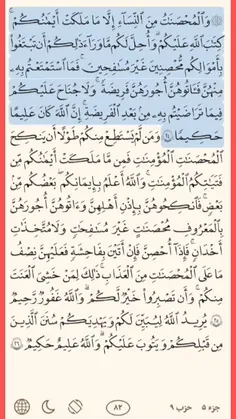 وَٱلْمُحْصَنَٰتُ مِنَ ٱلنِّسَآءِ إِلَّا مَا مَلَكَتْ أَيْمَٰنُكُمْ
كِتَٰبَ ٱللَّهِ عَلَيْكُمْ وَأُحِلَّ لَكُم مَّا وَرَآءَ ذَٰلِكُمْ أَن تَبْتَغُوا۟
بِأَمْوَٰلِكُم مُّحْصِنِينَ غَيْرَ مُسَٰفِحِينَ فَمَا ٱسْتَمْتَعْتُم بِهِۦ
مِنْهُنَّ فَـَٔاتُوهُنَّ أُجُورَهُنَّ فَرِيضَةً وَلَا جُنَاحَ عَلَيْكُمْ
فِيمَا تَرَٰضَيْتُم بِهِۦ مِنۢ بَعْدِ ٱلْفَرِيضَةِ إِنَّ ٱللَّهَ كَانَ عَلِيمًا
حَكِيمًا ٢٤ وَمَن لَّمْ يَسْتَطِعْ مِنكُمْ طَوْلًا أَن يَنكِحَ
ٱلْمُحْصَنَٰتِ ٱلْمُؤْمِنَٰتِ فَمِن مَّا مَلَكَتْ أَيْمَٰنُكُم مِّن
فَتَيَٰتِكُمُ ٱلْمُؤْمِنَٰتِ وَٱللَّهُ أَعْلَمُ بِإِيمَٰنِكُم بَعْضُكُم مِّنۢ
بَعْضٍ فَٱنكِحُوهُنَّ بِإِذْنِ أَهْلِهِنَّ وَءَاتُوهُنَّ أُجُورَهُنَّ
بِٱلْمَعْرُوفِ مُحْصَنَٰتٍ غَيْرَ مُسَٰفِحَٰتٍ وَلَا مُتَّخِذَٰتِ
أَخْدَانٍ فَإِذَآ أُحْصِنَّ فَإِنْ أَتَيْنَ بِفَٰحِشَةٍ فَعَلَيْهِنَّ نِصْفُ
مَا عَلَى ٱلْمُحْصَنَٰتِ مِنَ ٱلْعَذَابِ ذَٰلِكَ لِمَنْ خَشِىَ ٱلْعَنَتَ
مِنكُمْ وَأَن تَصْبِرُوا۟ خَيْرٌ لَّكُمْ وَٱللَّهُ غَفُورٌ رَّحِيمٌ
٢٥ يُرِيدُ ٱللَّهُ لِيُبَيِّنَ لَكُمْ وَيَهْدِيَكُمْ سُنَنَ ٱلَّذِينَ
مِن قَبْلِكُمْ وَيَتُوبَ عَلَيْكُمْ وَٱللَّهُ عَلِيمٌ حَكِيمٌ ٢٦
جزء ٥ حزب ٩
٨٢